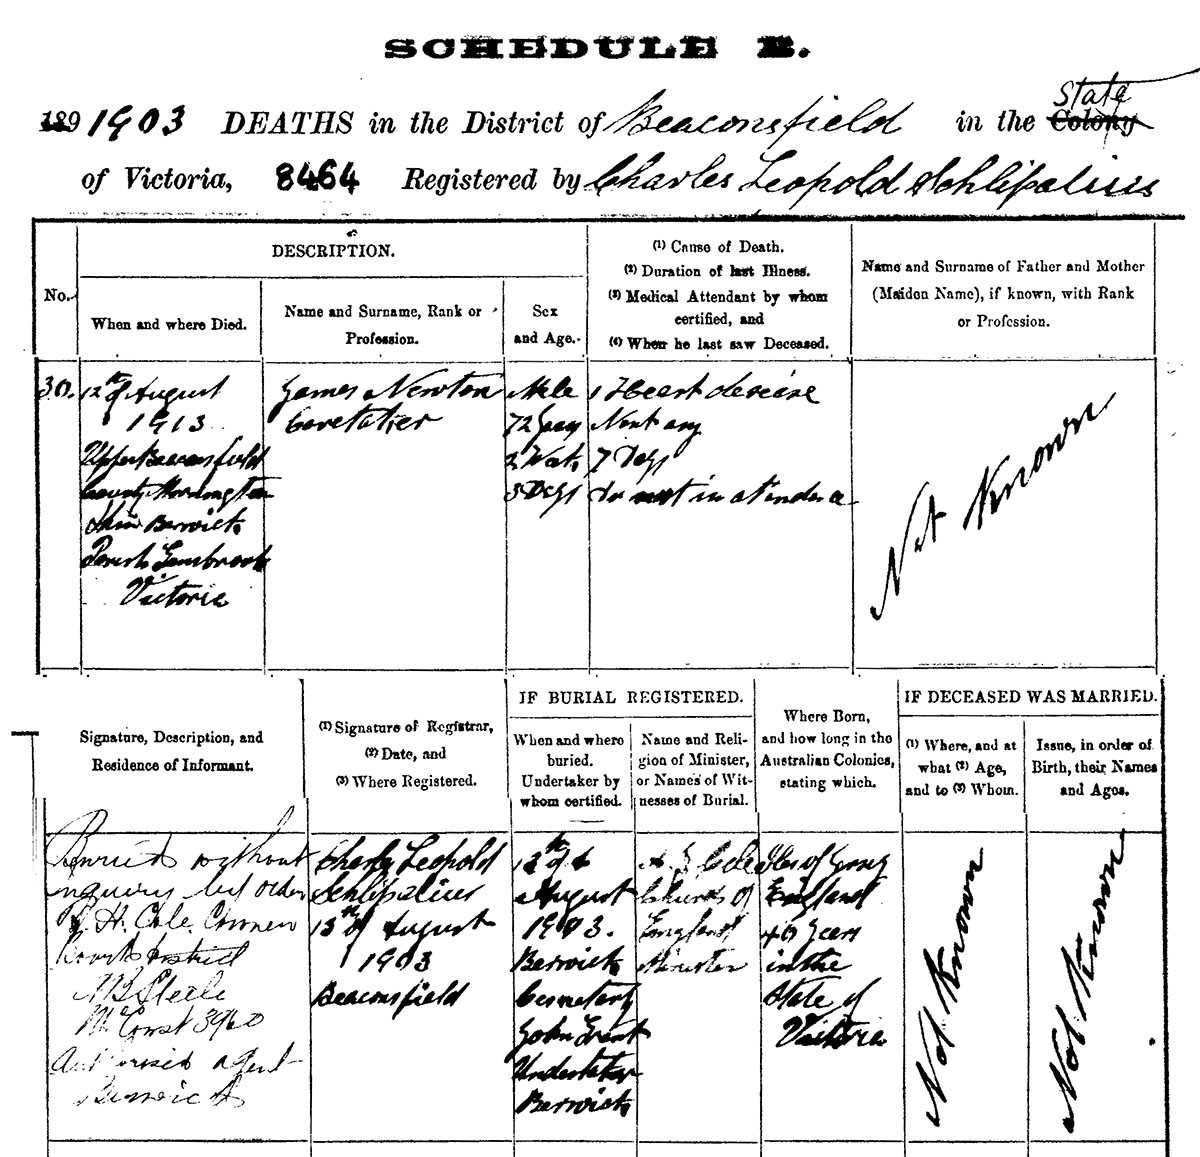 SCHEDULE B.
189 1903 DEATHS in the District of Beaconsfield in the Colony State
of Victoria, 8464 Registered by Charles Leopold Schlipalius
No.
DESCRIPTION.
When and where Died.
Name and Surname, Rank or
Profession.
Sex
and Age.
(1) Cause of Death.
(2) Duration of last Illness.
(3) Medical Attendant by whom
certified, and
(4) When he last saw Deceased.
Name and Surname of Father and Mother
(Maiden Name), if known, with Rank
or Profession.
30.
12th of August
1913
Upper Beaconsfield
County Mornington
Shire Berwick
Parish Gembrook
Victoria
James Newton
Caretaker
Male
72 years
2 Weks
3 Days
1 Heart deseise
Nont any
7 Days
not in atendance
Not Known
Signature, Description, and
Residence of Informant.
(1) Signature of Registrar,
(2) Date, and
(3) Where Registered.
IF BURIAL REGISTERED.
When and where
buried.
Undertaker by
whom certified.
Name and Reli-
gion of Minister,
or Names of Wit-
nesses of Burial.
Where Born,
and how long in the
Australian Colonies,
stating which.
IF DECEASED WAS MARRIED.
(1) Where, and at
what (2) Age,
and to (3) Whom.
Issue, in order of
Birth, their Names
and Ages.
Burried without
inquiry by order
H. Cole Croner
District
Steele
M Const 3960
Authorised agent
Berwick
Charles Leopold
Schlipalius
13th of August
1903
Beaconsfield
13th of
August
1903.
Berwick
Cemetery
John Grant
Undertaker
Berwick
Cole
Church of
England
Minister
England
40 Years
in the
State of
Victoria
Not Known
Not Known